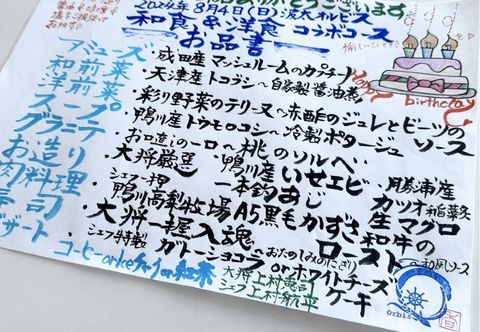 ありがとうございます
2024年8月4日(日)波太オルビス
和食&洋食コラボコース
お品書
Happy birthday
アミューズ
和前菜
洋前菜
スープ
グラニテ
お造り
肉料理
寿司
デザート
・成田産マッシュルームのカプチーノ
・天津産トコブシ〜自家製醤油煮
・彩り野菜のテリーヌ〜赤酢のジュレとビーツのソース
・鴨川産トウモロコシ〜冷製ポタージュ
・お口直しの一口〜桃のソルベ
・大将厳選 鴨川産いせエビ 勝浦産カツオ稲藁灸
一本釣あじ 生マグロ
シェフ一押
・鴨川高梨牧場A5黒毛かずさ和牛のロースト〜和風ソース
・大将一握入魂 おたのしみのにぎり
シェフ特製
・ガトーショコラ orホワイトチーズケーキ
コーヒーor Iceチャイor紅茶
大将上村恵司
シェフ上村航平
orbis